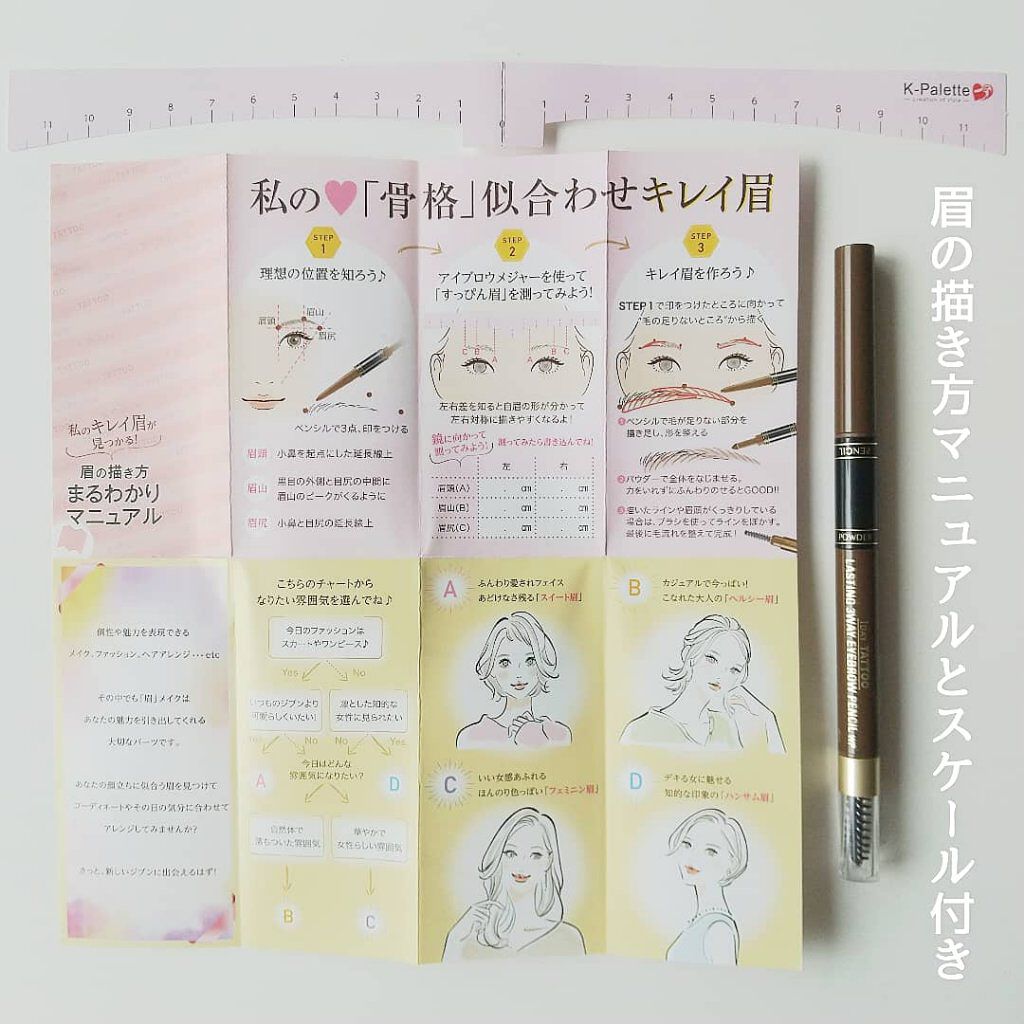 11 10 9 8 7 6 5 4 3 2 1 0 1 2 3 4 5 6 7 8 9 10 11
K-Palette
creation of style
私の♥「骨格」似合わせキレイ眉
私のキレイ眉が
見つかる!
眉の描き方
まるわかり
マニュアル
STEP
1
理想の位置を知ろう♪
眉山
眉頭
眉尻
ペンシルで3点、印をつける
眉頭 小鼻を起点にした延長線上
眉山 黒目の外側と目尻の中間に
眉山のピークがくるように
眉尻 小鼻と目尻の延長線上
STEP
2
アイブロウメジャーを使って
「すっぴん眉」を測ってみよう!
C B A A B C
左右差を知ると自眉の形が分かって
左右対称に描きやすくなるよ!
鏡に向かって
測ってみよう!
測ってみたら書き込んでね!
左 右
眉頭(A) cm . cm
眉山(B) cm . cm
眉尻(C) cm . cm
STEP
3
キレイ眉を作ろう♪
STEP1で印をつけたところに向かって
"毛の足りないところ"から描く
❶ペンシルで毛が足りない部分を
描き足し、形を整える
❷パウダーで全体をなじませる。
力をいれずにふんわりのせるとGOOD!!
❸描いたラインや眉頭がくっきりしている
場合は、ブラシを使ってラインをぼかす。
最後に毛流れを整えて完成!
個性や魅力を表現できる
メイク、ファッション、ヘアアレンジ・・・etc
その中でも「眉」メイクは
あなたの魅力を引き出してくれる
大切なパーツです。
あなたの顔立ちに似合う眉を見つけて
コーディネートやその日の気分に合わせて
アレンジしてみませんか?
きっと、新しいジブンに出会えるはず!
こちらのチャートから
なりたい雰囲気を選んでね♪
今日のファッションは
スカートやワンピース♪
Yes No
いつものジブンより
可愛らしくいたい!
凛とした知的な
女性に見られたい
Yes No No Yes
A
今日はどんな
雰囲気になりたい?
D
自然体で
落ちついた雰囲気
華やかで
女性らしい雰囲気
B C
A
ふんわり愛されフェイス
あどけなさ残る「スイート眉」
B
カジュアルで今っぽい!
こなれた大人の「ヘルシー眉」
C
いい女感あふれる
ほんのり色っぽい「フェミニン眉」
D
デキる女に魅せる
知的な印象の「ハンサム眉」
PENCIL
POWDER
1DAY TATTOO
LASTING 3WAY EYEBROW PENCIL WP
眉の描き方マニュアルとスケール付き